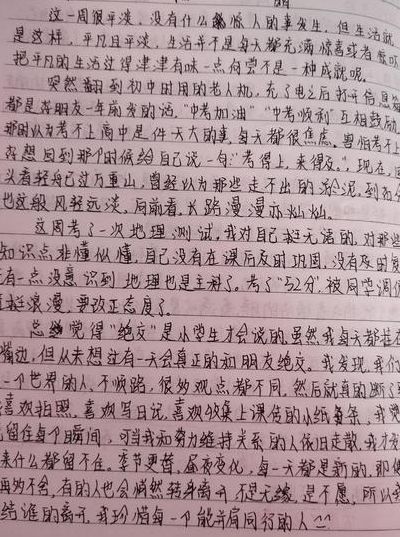 这一周很平淡,没有什么惊人的事发生,但生活就
是这样,平凡且平淡,生活并不是每天都充满惊喜或者
把平凡的生活过得津津有味一点何尝不是一种成就呢。
突然翻到初中时用的老人机,充了电之后打开信息
都是跟朋友一年前发的话,“中考加油”“中考顺利”互相鼓励
那时以为考不上高中是件天大的事,每天都很焦虑,害怕考不上
好想回到那个时候给自己说一句“考得上,来得及。”,现在,回
头看轻舟已过万重山,曾经以为那些走不出的淤泥,到如今
也这般风轻远淡,向前看,长路漫漫亦灿灿。
这周考了一次地理测试,我对自己挺无语的,对那些
知识点非懂似懂,自己没有在课后及时巩固,没有及时复
还有一点没意识到地理也是主科了。考了“52分”被同学调侃
挺浪漫,要改正态度了。
总觉得“绝交”是小学生才会说的,虽然我每天都挂在
嘴边,但从未想过有一天会真正的和朋友绝交。我发现,我们
一个世界的人,不顺路,很多观点都不同,然后就真的断了
喜欢拍照,喜欢写日记,喜欢收集上课传的小纸条,我
留住每个瞬间,可当我和努力维持关系的人依旧走散,我才
来什么都留不住。季节更替,昼夜变化,每一天都是新的,即使
再多不舍,有的人也会悄然转身离开,不是无缘,是不愿,所以
结谁的离开,我珍惜每一个能并肩同行的人^^